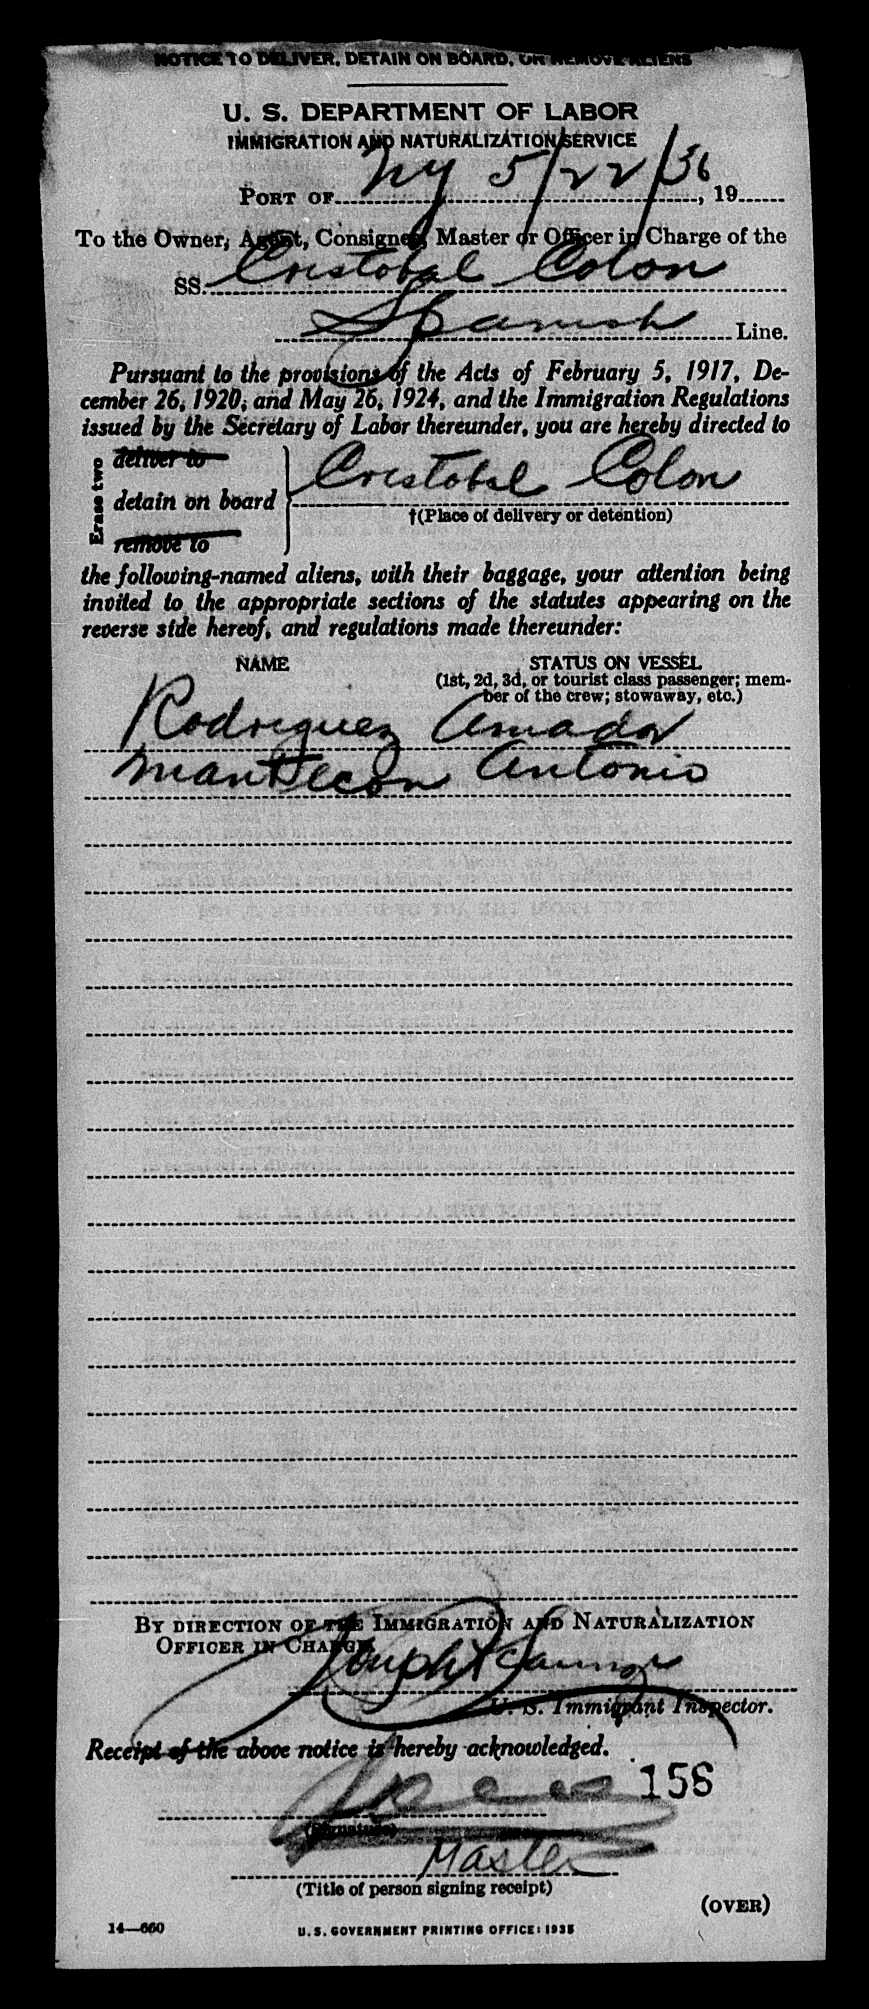 NOTICE TO DELIVER, DETAIN ON BOARD, OR REMOVE ALIENS
U. S. DEPARTMENT OF LABOR
IMMIGRATION AND NATURALIZATION SERVICE
PORT OF NY 5/22/36, 19
To the Owner, Agent, Consignee, Master or Officer in Charge of the
SS. Cristobal Colon
Spanish Line.
Pursuant to the provisions of the Acts of February 5, 1917, De-
cember 26, 1920, and May 26, 1924, and the Immigration Regulations
issued by the Secretary of Labor thereunder, you are hereby directed to
Erase two
deliver to
detain on board Cristobal Colon
†(Place of delivery or detention)
remove to
the following-named aliens, with their baggage, your attention being
invited to the appropriate sections of the statutes appearing on the
reverse side hereof, and regulations made thereunder:
NAME STATUS ON VESSEL
(1st, 2d, 3d, or tourist class passenger; mem-
ber of the crew; stowaway, etc.)
Rodriguez Amador
Mantecon Antonio
BY DIRECTION OF THE IMMIGRATION AND NATURALIZATION
OFFICER IN CHARGE
U. S. Immigrant Inspector.
Receipt of the above notice is hereby acknowledged.
158
(Signature)
Master
(Title of person signing receipt)
(OVER)
14—660 U. S. GOVERNMENT PRINTING OFFICE: 1935